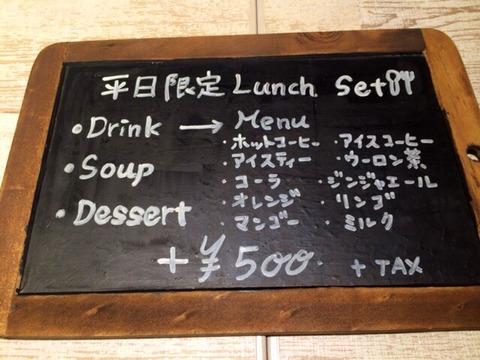 平日限定 Lunch Set
・Drink → Menu
・ホットコーヒー ・アイスコーヒー
・Soup ・アイスティー ・ウーロン茶
・コーラ ・ジンジャエール
・Dessert ・オレンジ ・リンゴ
・マンゴー ・ミルク
+ ¥500. + TAX